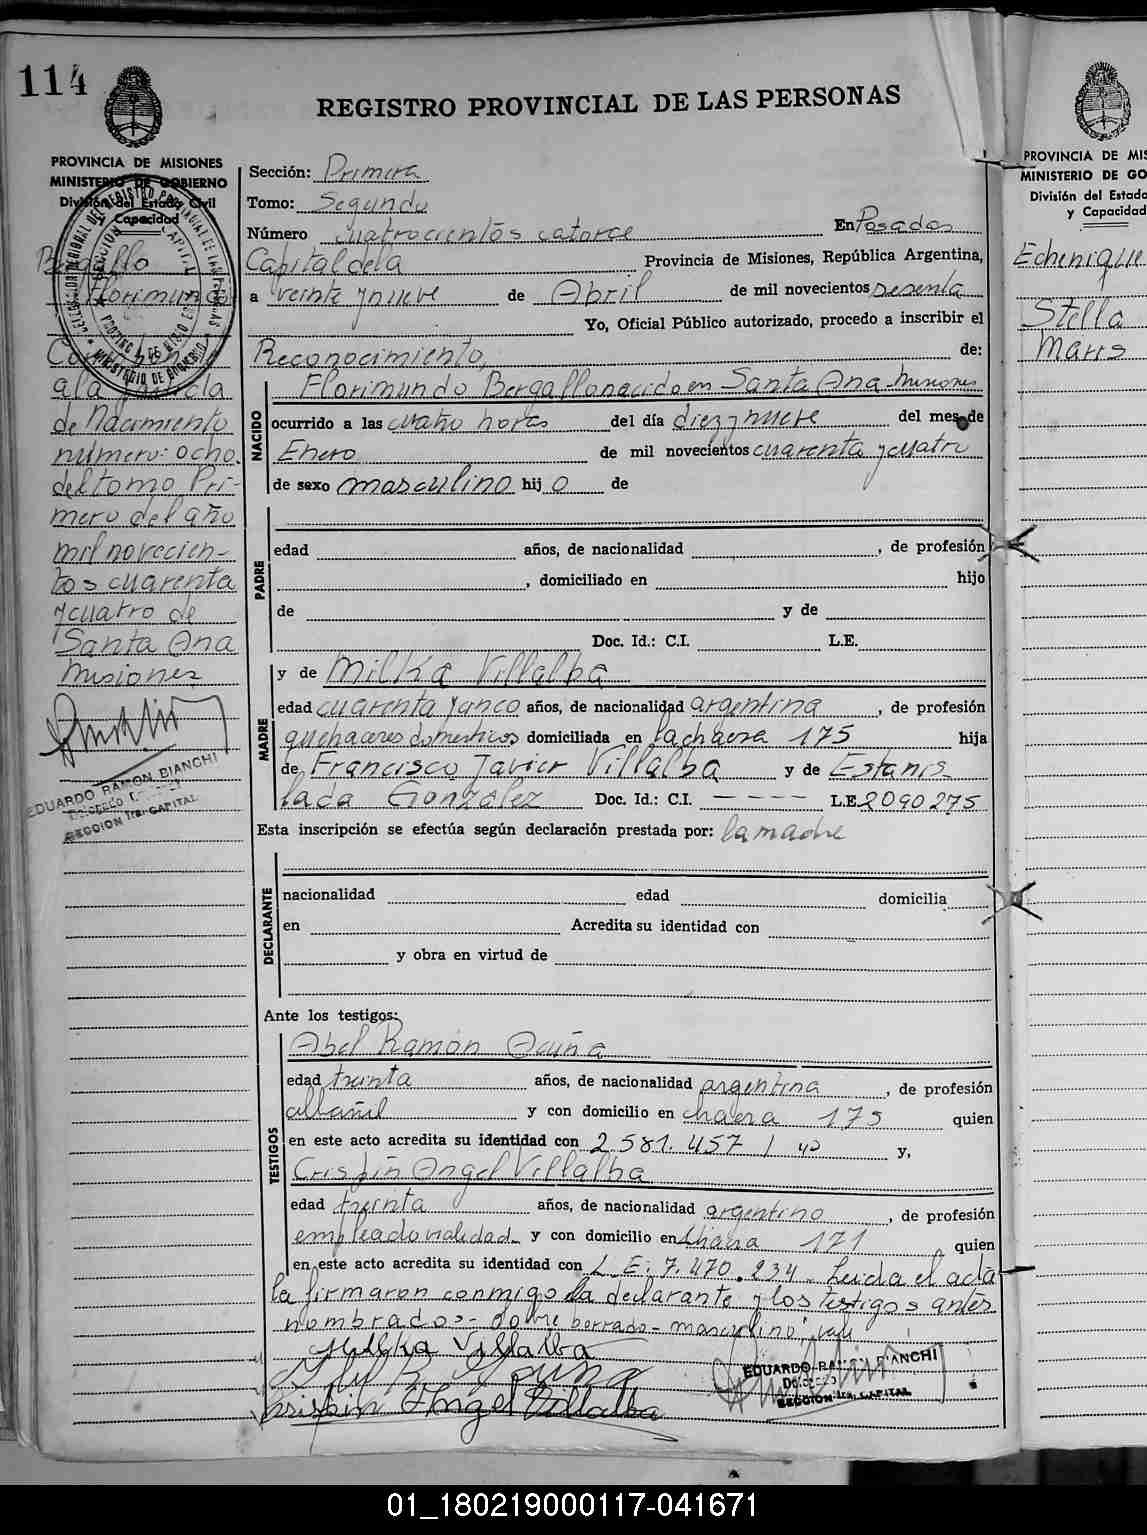 114
REGISTRO PROVINCIAL DE LAS PERSONAS
PROVINCIA DE MISIONES
MINISTERIO DE GOBIERNO
División del Estado Civil
y Capacidad
Bergallo
Florimundo
a la
de Nacimiento
número: ocho
del tomo Pri-
mero del año
mil novecien-
tos cuarenta
y cuatro de
Santa Ana
Misiones
EDUARDO RAMON BIANCHI
SECCION 1ra. CAPITAL
Sección: Primera
Tomo: Segundo
Número cuatrocientos catorce En Posadas
Capital de la Provincia de Misiones, República Argentina,
a veinte y nueve de Abril de mil novecientos sesenta
Yo, Oficial Público autorizado, procedo a inscribir el
Reconocimiento, de:
NACIDO
Florimundo Bergallo nacido en Santa Ana Misiones
ocurrido a las cuatro horas del día diez y nueve del mes de
Enero de mil novecientos cuarenta y cuatro
de sexo masculino hij o de
PADRE
edad años, de nacionalidad , de profesión
, domiciliado en hijo
de y de
Doc. Id.: C.I. L.E.
MADRE
y de Milka Villalba
edad cuarenta y cinco años, de nacionalidad argentina , de profesión
quehaceres domesticos domiciliada en la chacra 175 hija
de Francisco Javier Villalba y de Estanis
lada González Doc. Id.: C.I. - - - - - L.E. 2090275
Esta inscripción se efectúa según declaración prestada por: la madre
DECLARANTE
nacionalidad edad domicilia
en Acredita su identidad con
y obra en virtud de
Ante los testigos:
TESTIGOS
Abel Ramón Acuña
edad treinta años, de nacionalidad argentina , de profesión
albañil y con domicilio en chacra 175 quien
en este acto acredita su identidad con 2.581.457 / y,
Crispín Angel Villalba
edad treinta años, de nacionalidad argentino , de profesión
empleado vialidad y con domicilio en chacra 171 quien
en este acto acredita su identidad con L.E: 7.470.234 - Leida el acta
la firmaron conmigo la declarante y los testigos antes
nombrados - sobre borrado - masculino: vale
Milka Villalba
Crispin Angel Villalba
EDUARDO RAMON BIANCHI
SECCION 1ra. CAPITAL
PROVINCIA DE MIS
MINISTERIO DE GO
División del Estado
y Capacidad
Echenique
Stella
Maris
01_180219000117-041671